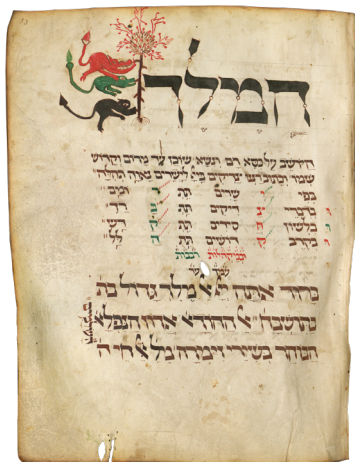 המלך
היושב על כסא רם ונשא שוכן עד מרום וקדוש
שמו וכתוב רננו צדיקים ביי לישרים נאוה תהלה
בפי ישרים תתרומם
ובדברי צדיקים תתברך
ובלשון חסידים תתקדש
ובקרב קדושים תתהלל
במקהלות רבבות
עמך
ברוך אתה יי אל מלך גדול בת
בתושבחו אל ההודא אדון הנפלא
הבוחר בשירי זימרה מלך אל חי ה
העולמים